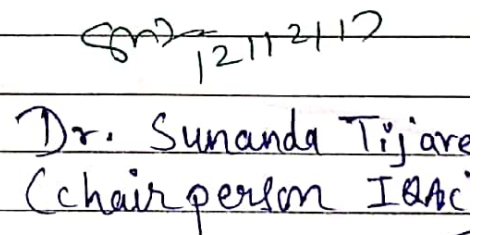 12/12/17
Dr. Sunanda Tijare
(chairperson IQAC